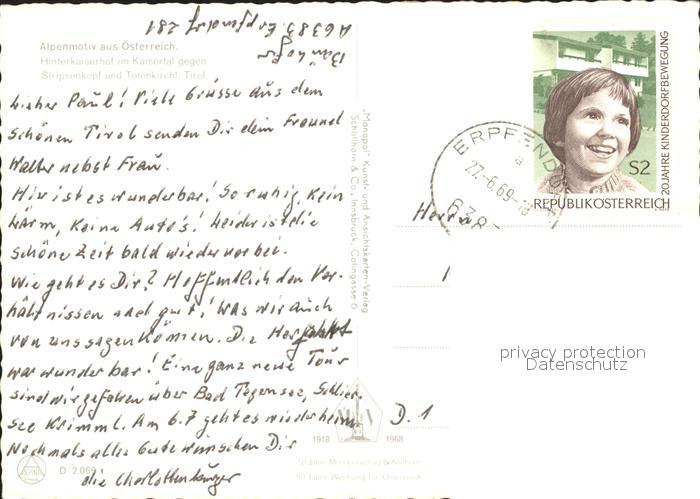 A 6383 Erpfendorf 281
Alpenmotiv aus Österreich.
Hinterkaiserhof im Kaisertal gegen
Stripsenkopf und Totenkirchl. Tirol.
Lieber Paul! Viele Grüsse aus dem
schönen Tirol senden Dir dein Freund
Walter nebst Frau.
Hir ist es wunderbar! So ruhig, kein
Lärm, keine Auto's! Leider ist die
schöne Zeit bald wieder vorbei.
Wie geht es Dir? Hoffentlich den Ver-
hältnissen nach gut! Was wir auch
von uns sagen können. Die Herfahrt
war wunderbar! Eine ganz neue Tour
sind wir gefahren über Bad Tegernsee, Schlier-
see Krimml. Am 6.7 geht es wieder heim
Nochmals alles Gute wünschen Dir
die Charlottenburger
D 2069
"Monopol" Kunst- und Ansichtskarten-Verlag
Schöllhorn & Co., Innsbruck, Colingasse 6
1918 1968
50 Jahre Monopolverlag Schöllhorn
50 Jahre Werbung für Österreich
ERPFENDORF
27.-6.69-18
a
638
20 JAHRE KINDERDORFBEWEGUNG
S2
REPUBLIK ÖSTERREICH
Herrn
D. 1
privacy protection
Datenschutz